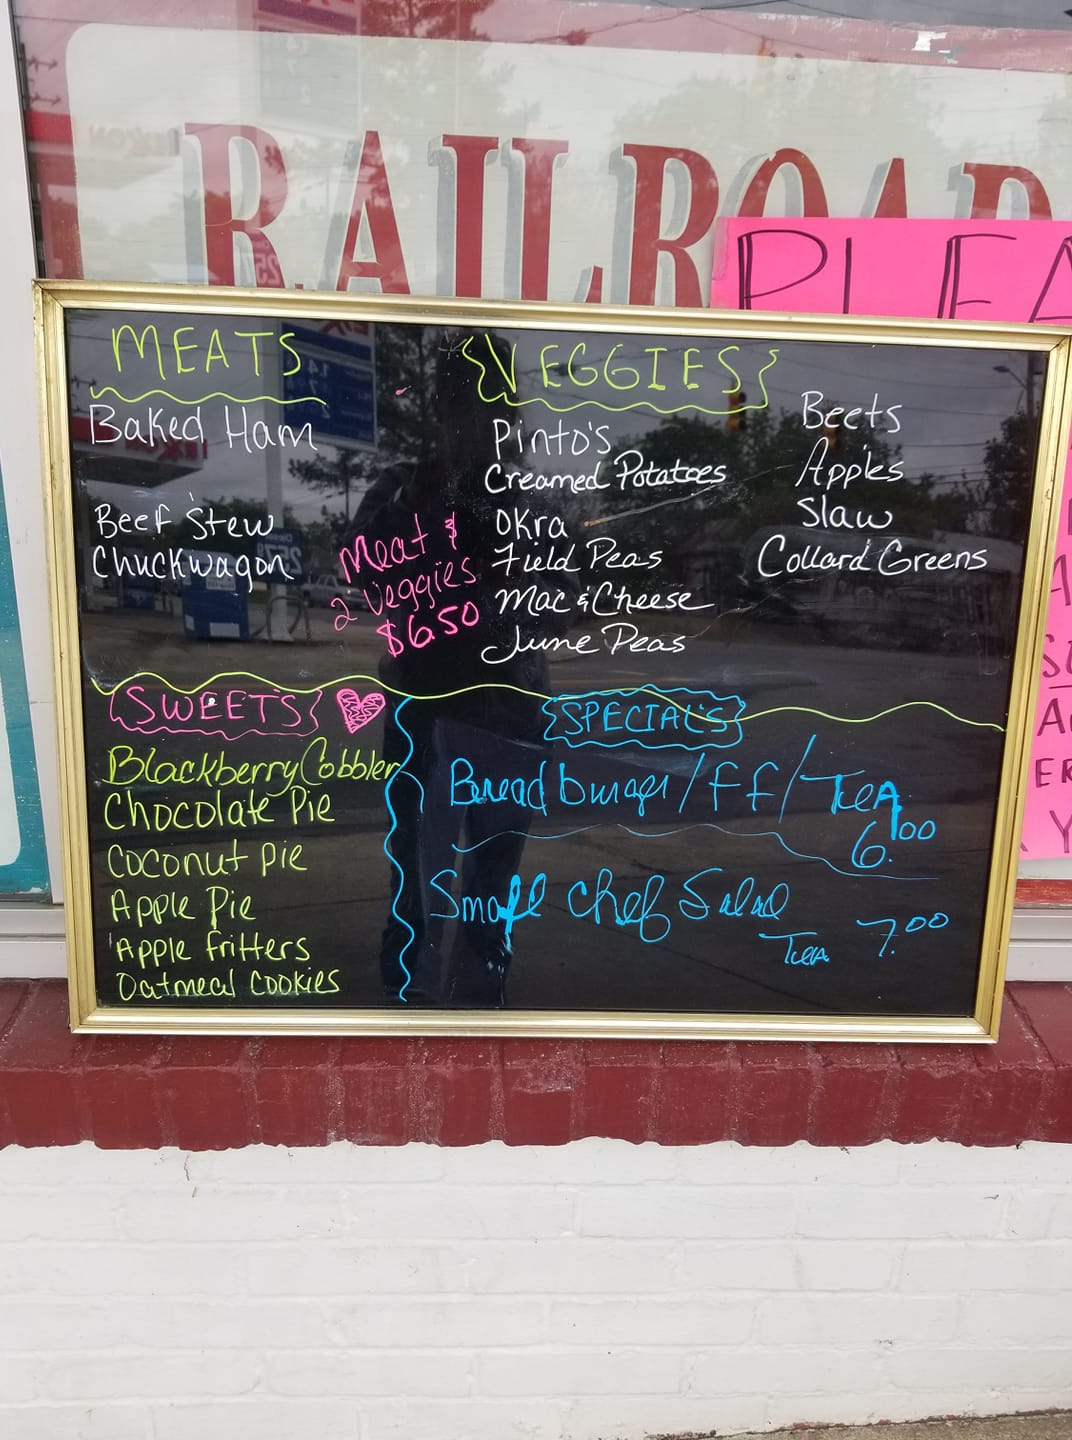 RAILROAD
PLEA
MEATS
Baked Ham
Beef Stew
Chuckwagon
Meat &
2 Veggies
$6.50
VEGGIES
Pinto's
Creamed Potatoes
Okra
Field Peas
Mac & Cheese
June Peas
Beets
Apples
Slaw
Collard Greens
SWEETS
Blackberry Cobbler
Chocolate Pie
Coconut Pie
Apple Pie
Apple fritters
Oatmeal Cookies
SPECIAL'S
Bread burger / ff / Tea
6.00
Small Chef Salad
Tea 7.00